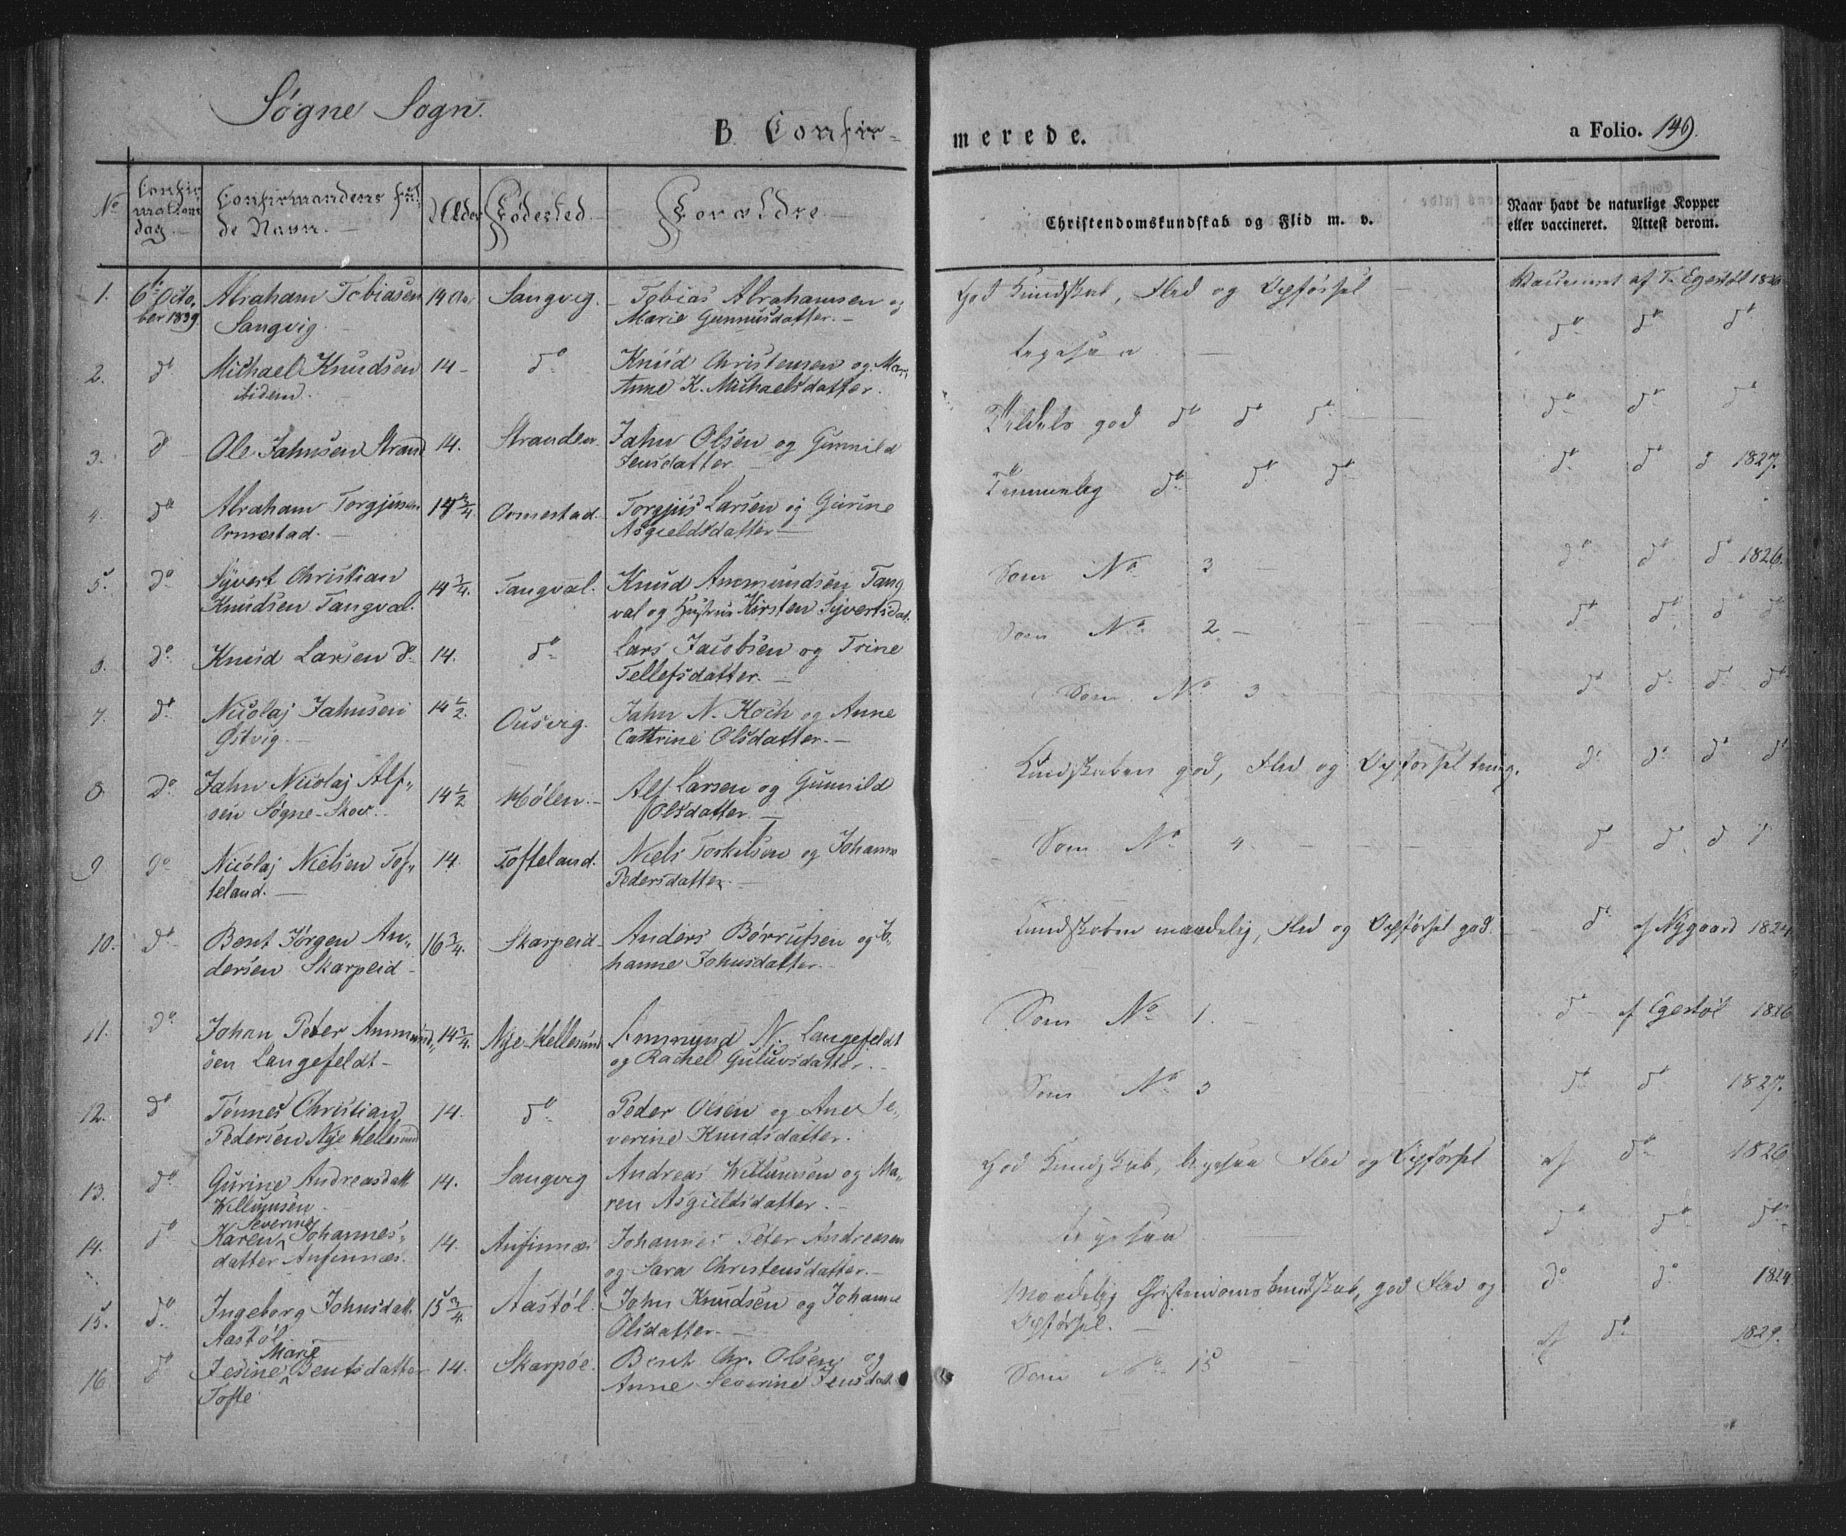 Søgne Sogn.
B. Confir-
merede.
a Folio. 149.
No
Confir
mations
dag.
Confirmandens ful
de Navn.
Alder
Fødested.
Forældre
Christendomskundskab og Flid m. v.
Naar havt de naturlige Kopper
eller vaccineret. Attest derom.
1. 6te Octo, Abraham Tobiasen 14 Sangvig. Tobias Abrahamsen og God Kundskab, Flid og Opførsel Vaccineret af T. Egestøl 1826
ber 1839 Sangvig. Marie Gunnusdatter.
2. do Michael Knudsen 14 do Knud Christensen og Mari do do do
ibidem. Anne K. Michaelsdatter.
3. do Ole Jahnsen Strand 14. Stranden. Jahn Olsen og Gunnild god do do do do do do
Jensdatter
4. do Abraham Torgjusen 14 3/4 Ormestad. Torgjus Larsen og Gurine Temmelig do do do do do d 1827.
Ormestad. Asgieldsdatter
5. do Syvert Christian 14 3/4. Tangval. Knud Ammundsen Tang Som No 3 do do do 1826.
Knudsen Tangval. val og Hustrue Kirsten Syvertsdat.
6. do Knud Larsen do 14. do Lars Jacobsen og Trine Som No 2 do do do do
Tellefsdatter.
7. do Nicolaj Jahnsen 14 1/2. Ousvig. Jahn N. Koch og Anne Som No 3 do do do do
Østvig. Cathrine Olsdatter.
8. do Jahn Nicolaj Alf- 14 1/2 Hølen. Alf Larsen og Gunnild Kundskaben god, Flid og Opførsel do do do do
sen Søgne-Skov. Olsdatter.
9 do Nicolaj Nielsen Tof- 14. Tofteland. Niels Torkelsen og Johanne Som No 4 do do do do
teland. Pedersdatter.
10. do Bent Jørgen An- 16 3/4. Skarpeid Anders Børrufsen og Jo- Kundskaben maadelig, Flid og Opførsel god. do af Nygaard 1824
dersen Skarpeid hanne Johnsdatter.
11. do Johan Peter Ammund- 14 3/4. Nye-Hellesund Ammund N. Langefeldt Som No 1. do af Egestøl 1826
sen Langefeldt og Rachel Guluvsdatter.
12. do Tønnes Christian 14. do Peder Olsen og Ane Se- Som No 3 do do 1827.
Pedersen Nye Hellesund verine Knudsdatter.
13. do Gurine Andreasdatt 14. Sangvig Andreas Willumsen og Ma- God Kundskab, Flid og Opførsel af do 1826
Willumsen. ren Asgieldsdatter.
Severine
14. do Karen Johannes- 14. Anfinnæs Johannes Peter Andreasen do do do
datter Anfinnæs. og Sara Christensdatter.
15. do Ingeborg Johnsdatt. 15 3/4 Aastøl. John Knudsen og Johanne Maadelig Christendomskundskab, god Flid og do do 1824
Aastøl Olsdatter. Opførsel.
Marie
16 do Jesine Bentsdatter 14. Skarpøe. Bent Chr. Olsen og Som No 15 af do 1829.
Tofte Anne Severine Jensdatt